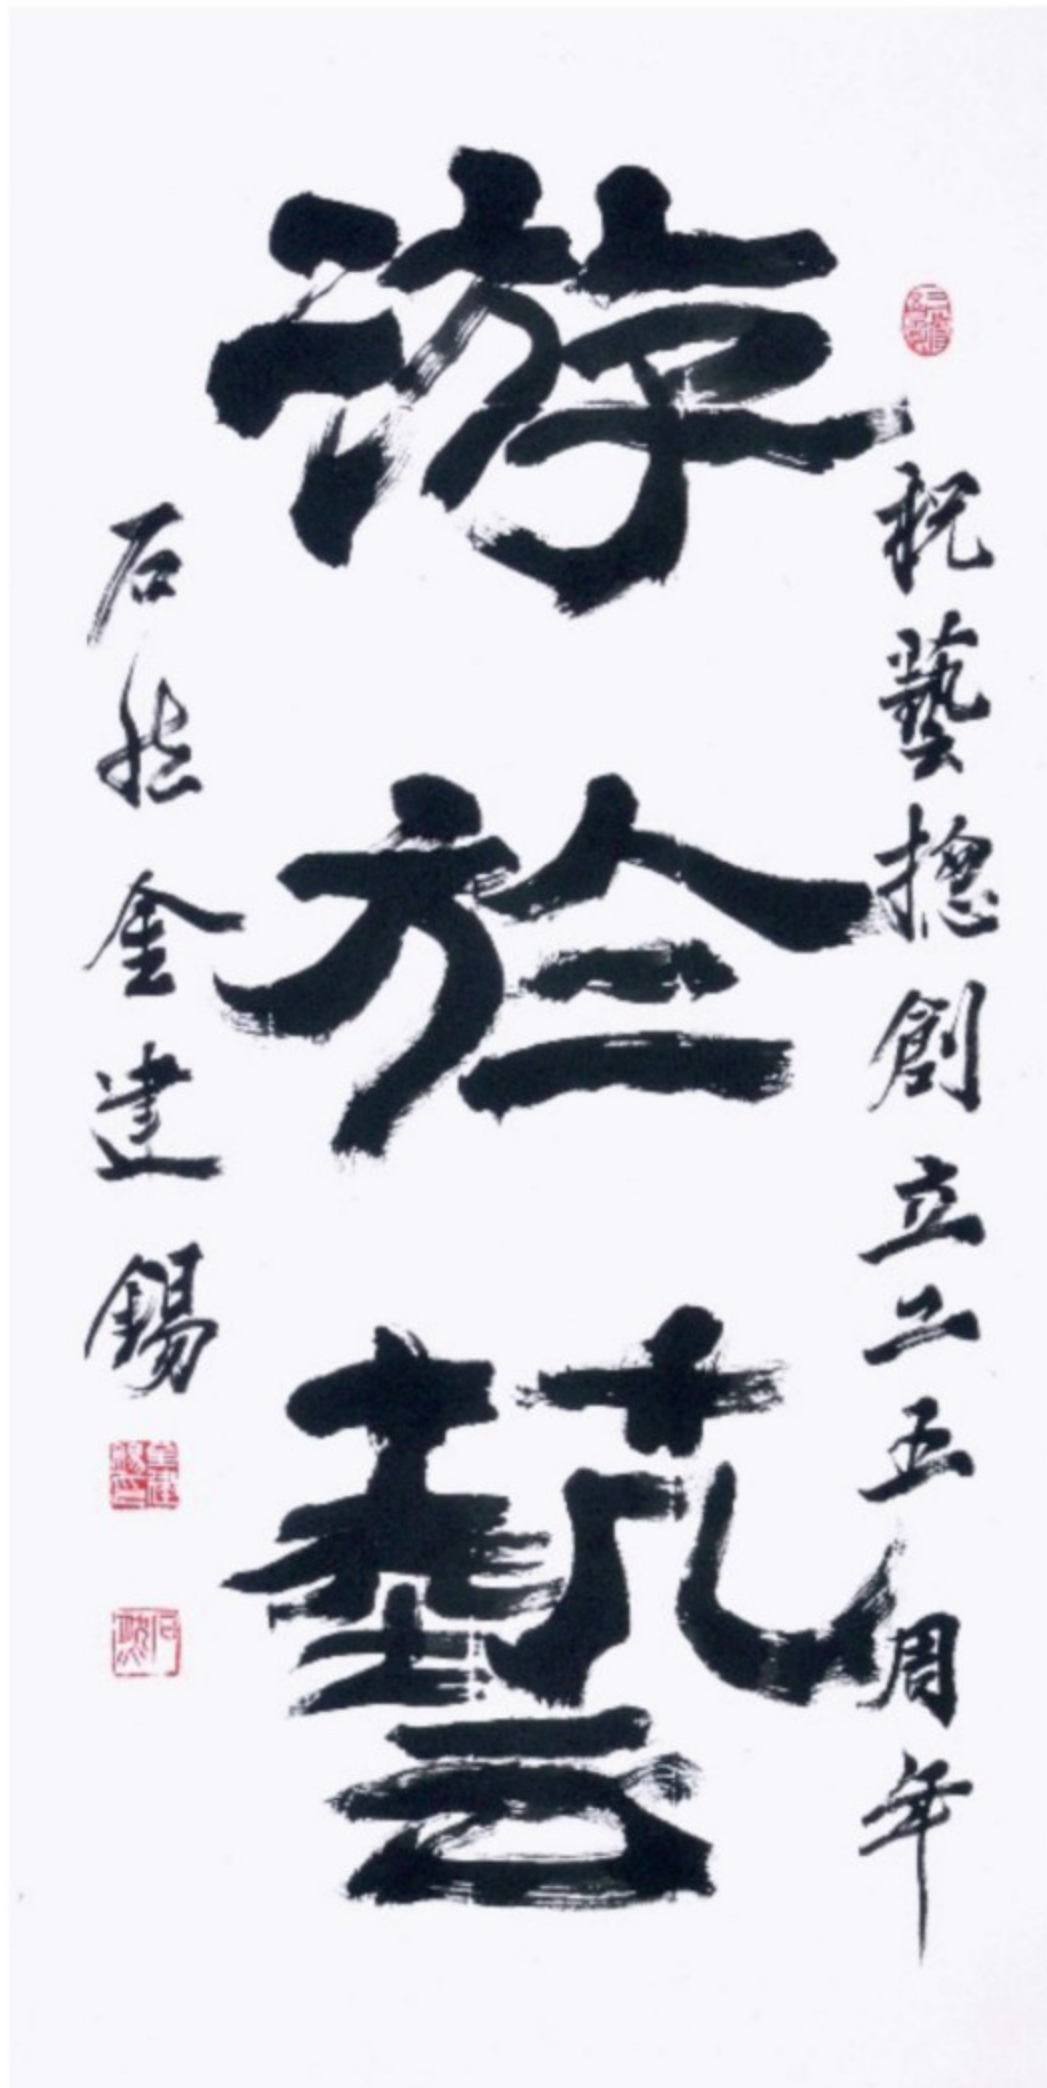 祝藝摠創立二五周年
游於藝
石 金建錫